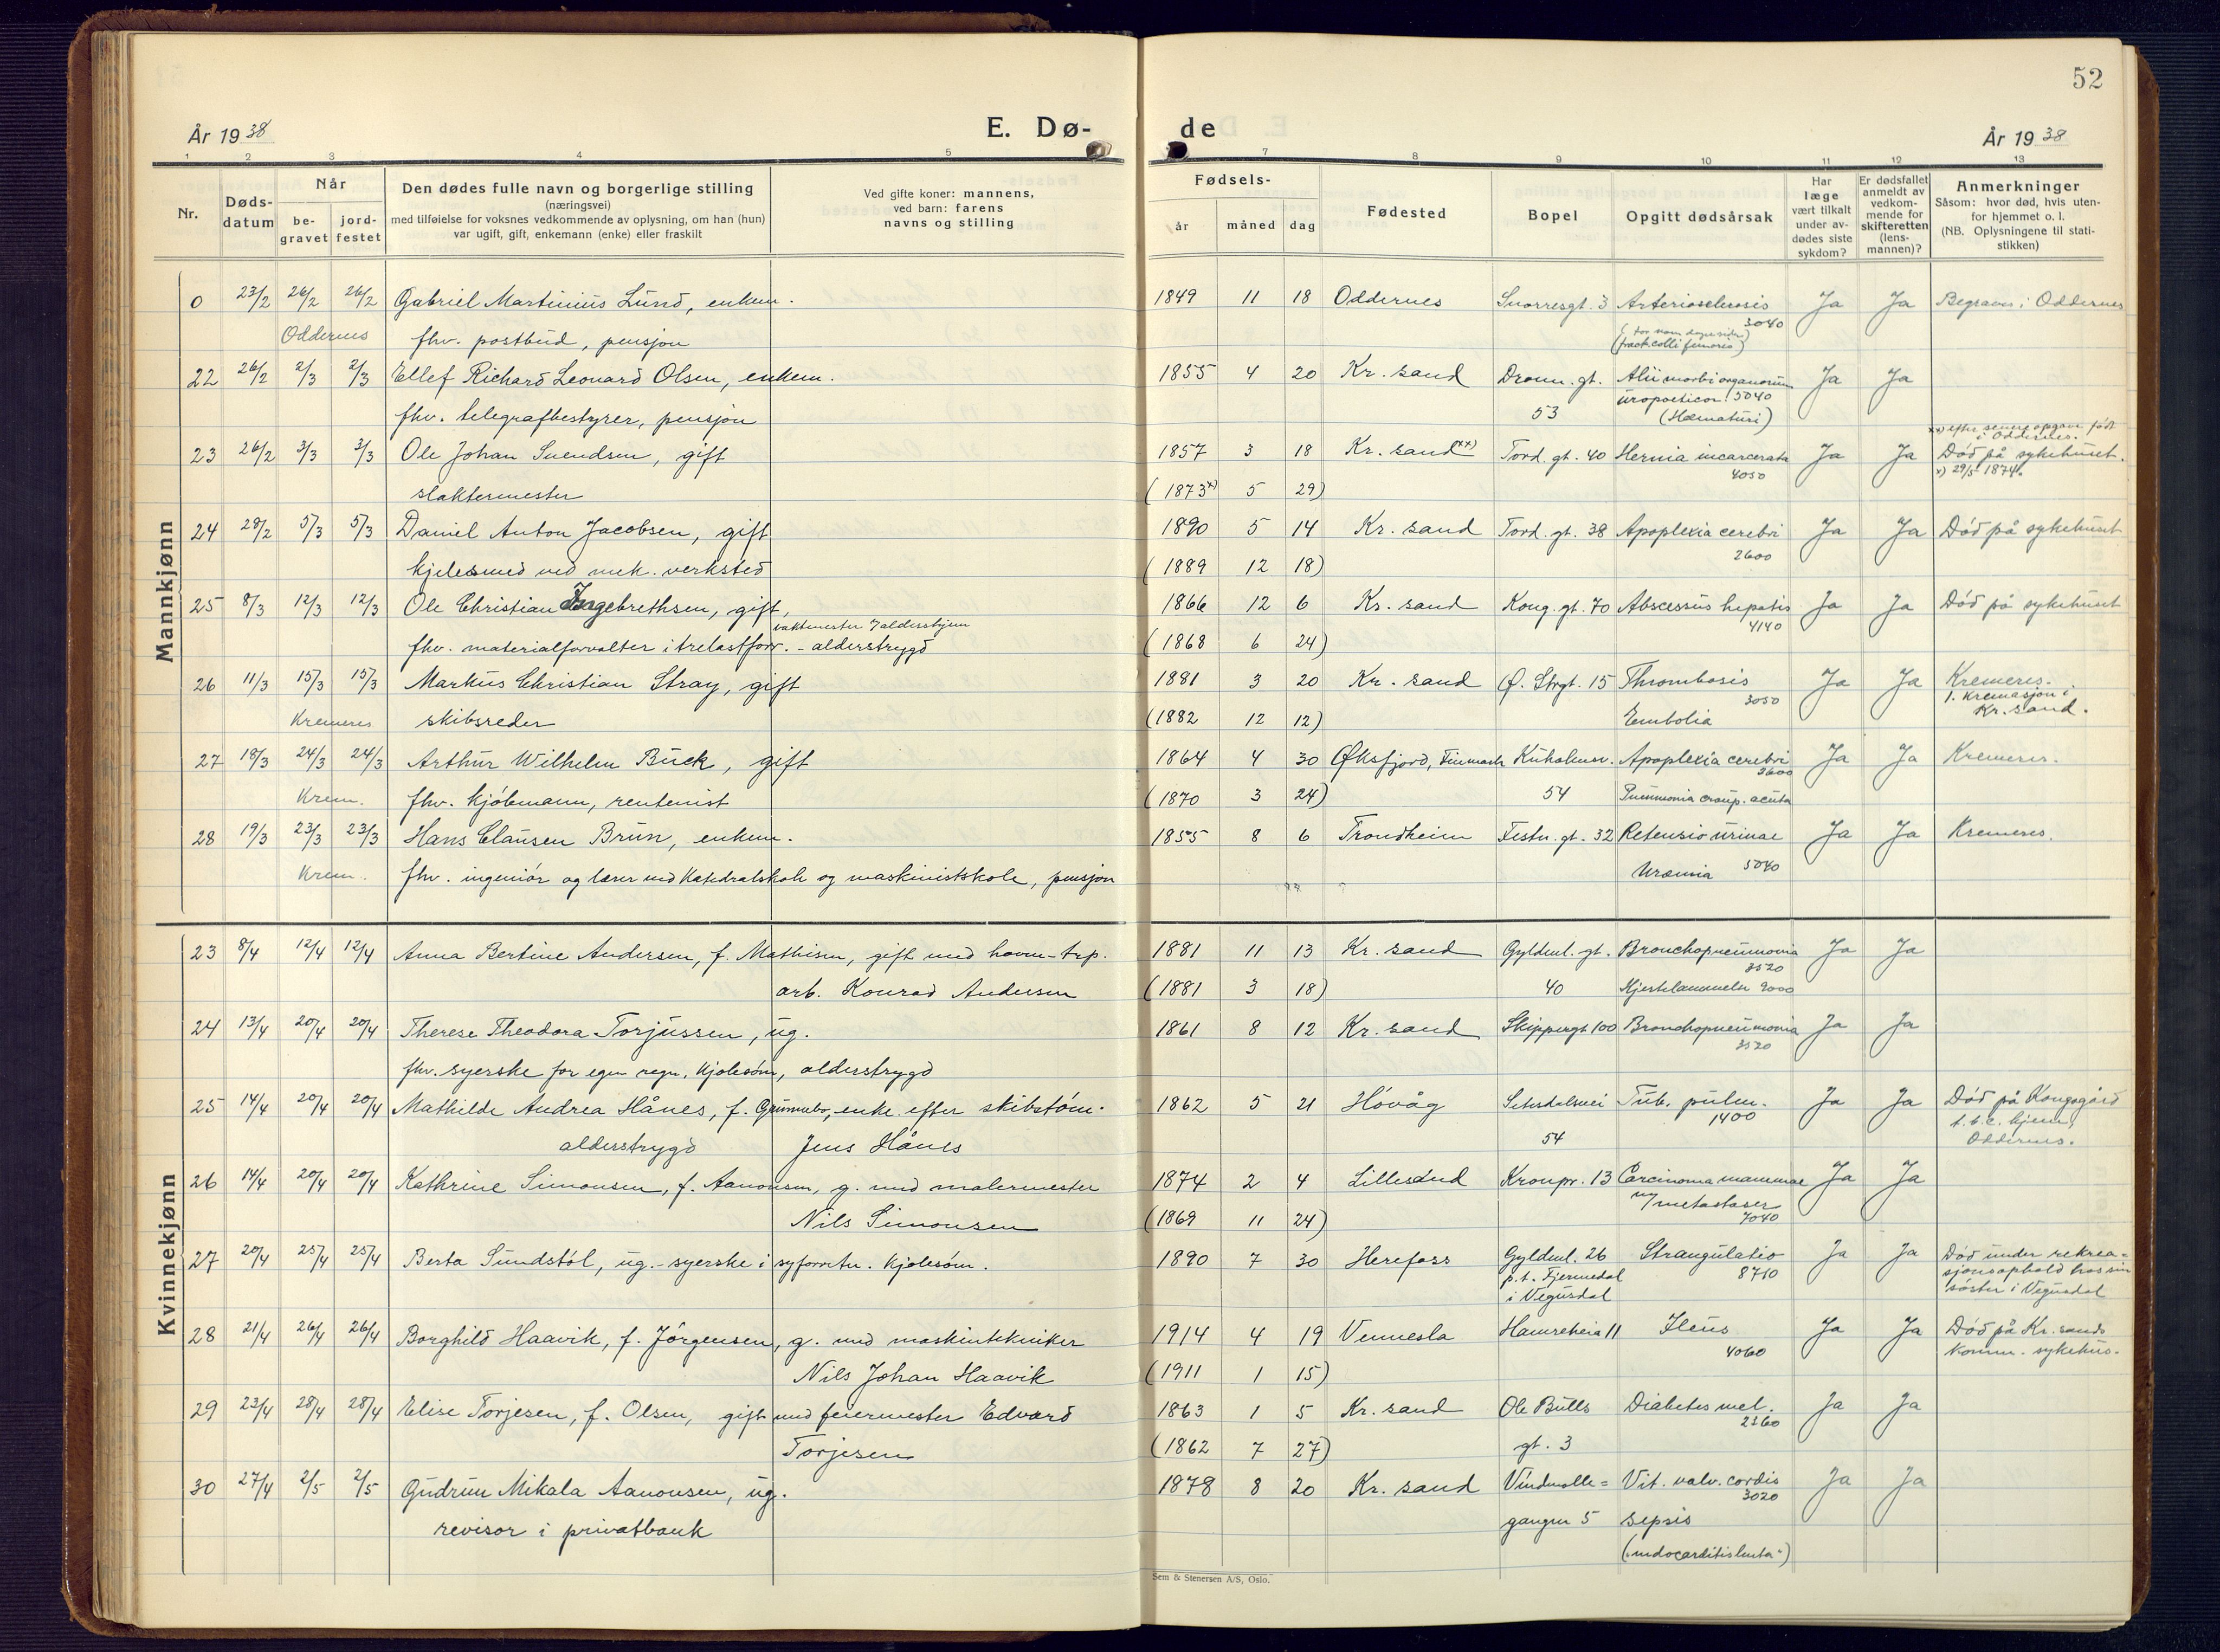 52
År 1938
E. Dø-
de
År 1938
1 2 3 4 5
7 8 9 10 11 12 13
Nr.
Dødsdatum
Når
begravet
jordfestet
Den dødes fulle navn og borgerlige stilling
(næringsvei)
med tilføielse for voksnes vedkommende av oplysning, om han (hun)
var ugift, gift, enkemann (enke) eller fraskilt
Ved gifte koner: mannens,
ved barn: farens
navns og stilling
Fødsels-
år måned dag
Fødested
Bopel
Opgitt dødsårsak
Har
læge
vært tilkalt
under av-
dødes siste
sykdom?
Er dødsfallet
anmeldt av
vedkom-
mende for
skifteretten
(lens-
mannen)?
Anmerkninger
Såsom: hvor død, hvis uten-
for hjemmet o. l.
(NB. Oplysningene til stati-
stikken)
Mannkjønn
0 23/2 26/2 26/2 Gabriel Martinius Lund, enkem. 1849 11 18 Oddernes Snorresgt. 3 Arteriosclerosis Ja Ja Begraves i Oddernes
3040
Oddernes fhv. postbud, pensjon
(fract. colli femoris)
22 26/2 2/3 2/3 Ellef Richard Leonard Olsen, enkem. 1855 4 20 Kr. sand Dronn. gt. Alii morbi organorum Ja Ja
uropoeticor. 5040
fhv. telegrafbestyrer, pensjon 53 (Hæmaturi)
xx) efter senere opgave født
i Oddernes.
23 26/2 3/3 3/3 Ole Johan Svendsen, gift 1857 3 18 Kr. sand xx) Tord. gt. 40 Hernia incarcerata Ja Ja Død på sykehuset.
4050 x) 29/5 1874.
slaktermester (1873 x) 5 29)
24 28/2 5/3 5/3 Daniel Anton Jacobsen, gift 1890 5 14 Kr. sand Tord. gt. 38 Apoplexia cerebri Ja Ja Død på sykehuset
2600
kjelesmed ved mek. verksted (1889 12 18)
25 8/3 12/3 12/3 Ole Christian Ingebrethsen, gift, 1866 12 6 Kr. sand Kong. gt. 70 Abscessus hepatis Ja Ja Død på sykehuset
vaktmester i aldershjem 4140
fhv. materialforvalter i trelastforr. - alderstrygd (1868 6 24)
26 11/3 15/3 15/3 Markus Christian Stray, gift 1881 3 20 Kr. sand Ø. Strgt. 15 Thrombosis Ja Ja Kremeres.
3050 1. kremasjon i
Kr. sand.
Kremeres skibsreder (1882 12 12) Embolia
27 18/3 24/3 24/3 Arthur Wilhelm Buck, gift 1864 4 30 Øksfjord, Finmark Kuholmsv. Apoplexia cerebri Ja Ja Kremeres.
2600
Krem. fhv. kjøbmann, rentenist (1870 3 24) 54 Pneumonia croup. acuta
28 19/3 23/3 23/3 Hans Clausen Brun, enkem. 1855 8 6 Trondheim Festn. gt. 32 Retensio urinae Ja Ja Kremeres.
Krem. fhv. ingeniør og lærer ved Katedralskole og maskinistskole, pensjon Uræmia 5040
Kvinnekjønn
23 8/4 12/4 12/4 Anna Bertine Andersen, f. Mathisen, gift med havn- trp. 1881 11 13 Kr. sand Gyldenl. gt. Bronchopneumonia Ja Ja
3520
arb. Konrad Andersen (1881 3 18) 40 Hjertelammelse 9000
24 13/4 20/4 20/4 Therese Theodora Torjussen, ug. 1861 8 12 Kr. sand Skippergt 100 Bronchopneumonia Ja Ja
3520
fhv. syerske for egen regn. kjolesøm, alderstrygd
25 14/4 20/4 20/4 Mathilde Andrea Hånes, f. enke efter skibstøm. 1862 5 21 Høvåg Setesdalsvei Tub. pulm. Ja Ja Død på Kongsgård
1400 t.b.c. hjem,
alderstrygd Jens Hånes 54 Oddernes.
26 14/4 20/4 20/4 Kathrine Simonsen, f. Aanonsen, g. med malermester 1874 2 4 Lillesand Kronpr. 13 Carcinoma mammae Ja Ja
m/metastaser
7040
Nils Simonsen (1869 11 24)
27 20/4 25/4 25/4 Berta Sundstøl, ug. - syerske i syforretn. kjolesøm. 1890 7 30 Herefoss Gyldenl. 26 Strangulatio Ja Ja Død under rekrea=
p.t. Fjermedal 8710 sjonsophold hos sin
i Vegusdal søster i Vegusdal
28 21/4 26/4 26/4 Borghild Haavik, f. Jørgensen, g. med maskintekniker 1914 4 19 Vennesla Hamreheia 11 Ileus Ja Ja Død på Kr. sands
4060 komm. sykehus.
Nils Johan Haavik (1911 1 15)
29 23/4 28/4 28/4 Elise Torjesen, f. Olsen, gift med feiermester Edvard 1863 1 5 Kr. sand Ole Bulls Diabetes mel. Ja Ja
2360
Torjesen (1862 7 27) gt. 3
30 27/4 2/5 2/5 Gudrun Mikala Aanonsen, ug. 1878 8 20 Kr. sand Vindmølle= Vit. valv. cordis Ja Ja
3020
revisor i privatbank gangen 5 sepsis
("endocarditis lenta")
Sem & Stenersen A/S, Oslo.